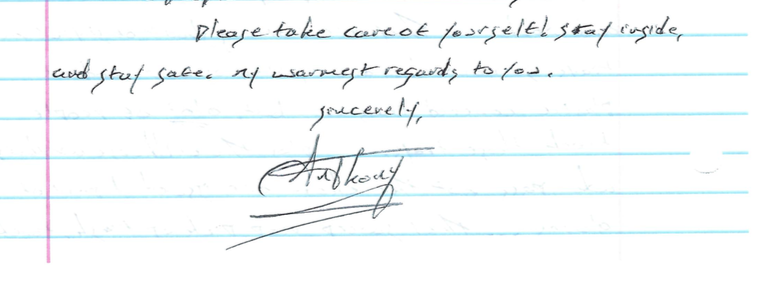 Please take care of yourself! stay inside,
and stay safe. My warmest regards to you.
Sincerely,
Anthony